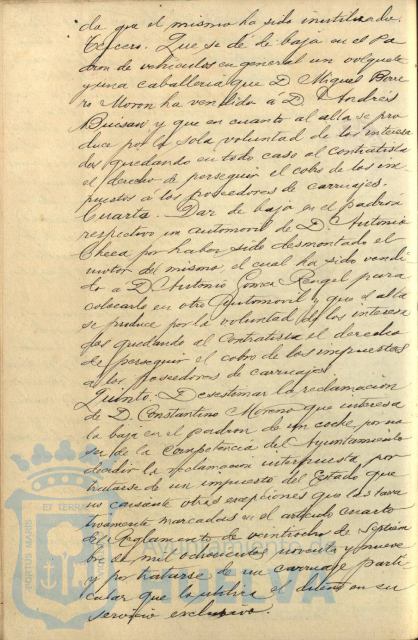 da que el mismo ha sido inutilizado.
Tercero. Que se dé de baja en el Pa
dron de vehiculos en general un volquete
y una caballeria que D. Miguel Borre
ro Moron ha vendido á D. Andrés
y que en cuanto al alta se pro
duce por la sola voluntad de los interesa
dos quedando en todo caso al contratista
el derecho de perseguir el cobro de los im
puestos á los poseedores de carruajes.
Cuarto. Dar de baja en el padron
respectivo un automovil de D. Antonio
Checa por haber sido desmontado el
motor del mismo el cual ha sido vendi
do a D. Antonio Gomez Rengel para
colocarlo en otro automovil y que el alta
se produce por la voluntad de los interesa
dos quedando al Contratista el derecho
de perseguir el cobro de los impuestos
a los poseedores de carruajes.
Quinto. Desestimar la reclamacion
de D. Constantino Moreno que interesa
la baja en el padron de un coche, por no
ser de la competencia del Ayuntamiento
decidir la reclamacion interpuesta por
tratarse de un impuesto del Estado que
no consiente otras excepciones que las taxa
tivamente marcadas en el articulo cuarto
del Reglamento de veintiocho de Septiem
bre de mil ochocientos noventa y nueve
y por tratarse de un carruaje parti
cular que lo utiliza el dueño en su
servicio exclusivo.
PORTUS MARIS ET TERRAE
HUELVA